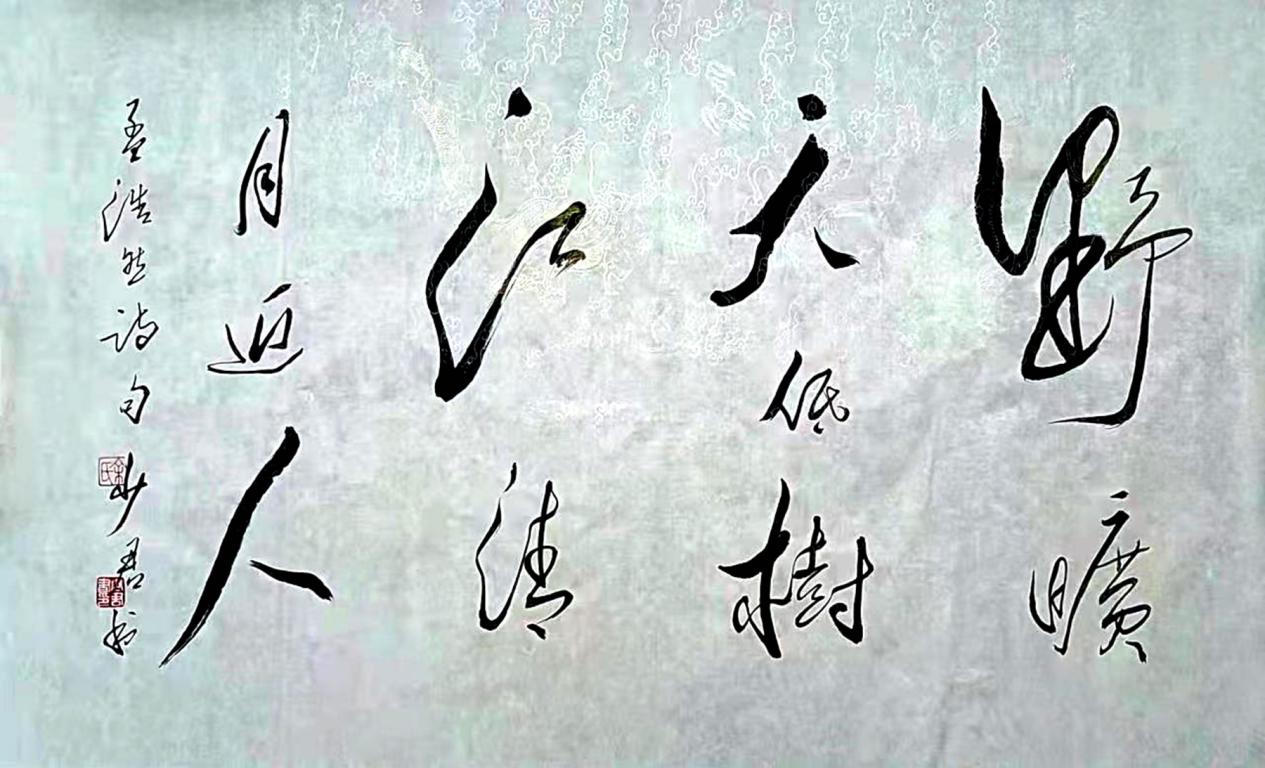 野曠
天低樹
江清
月近人
孟浩然詩句 少君書